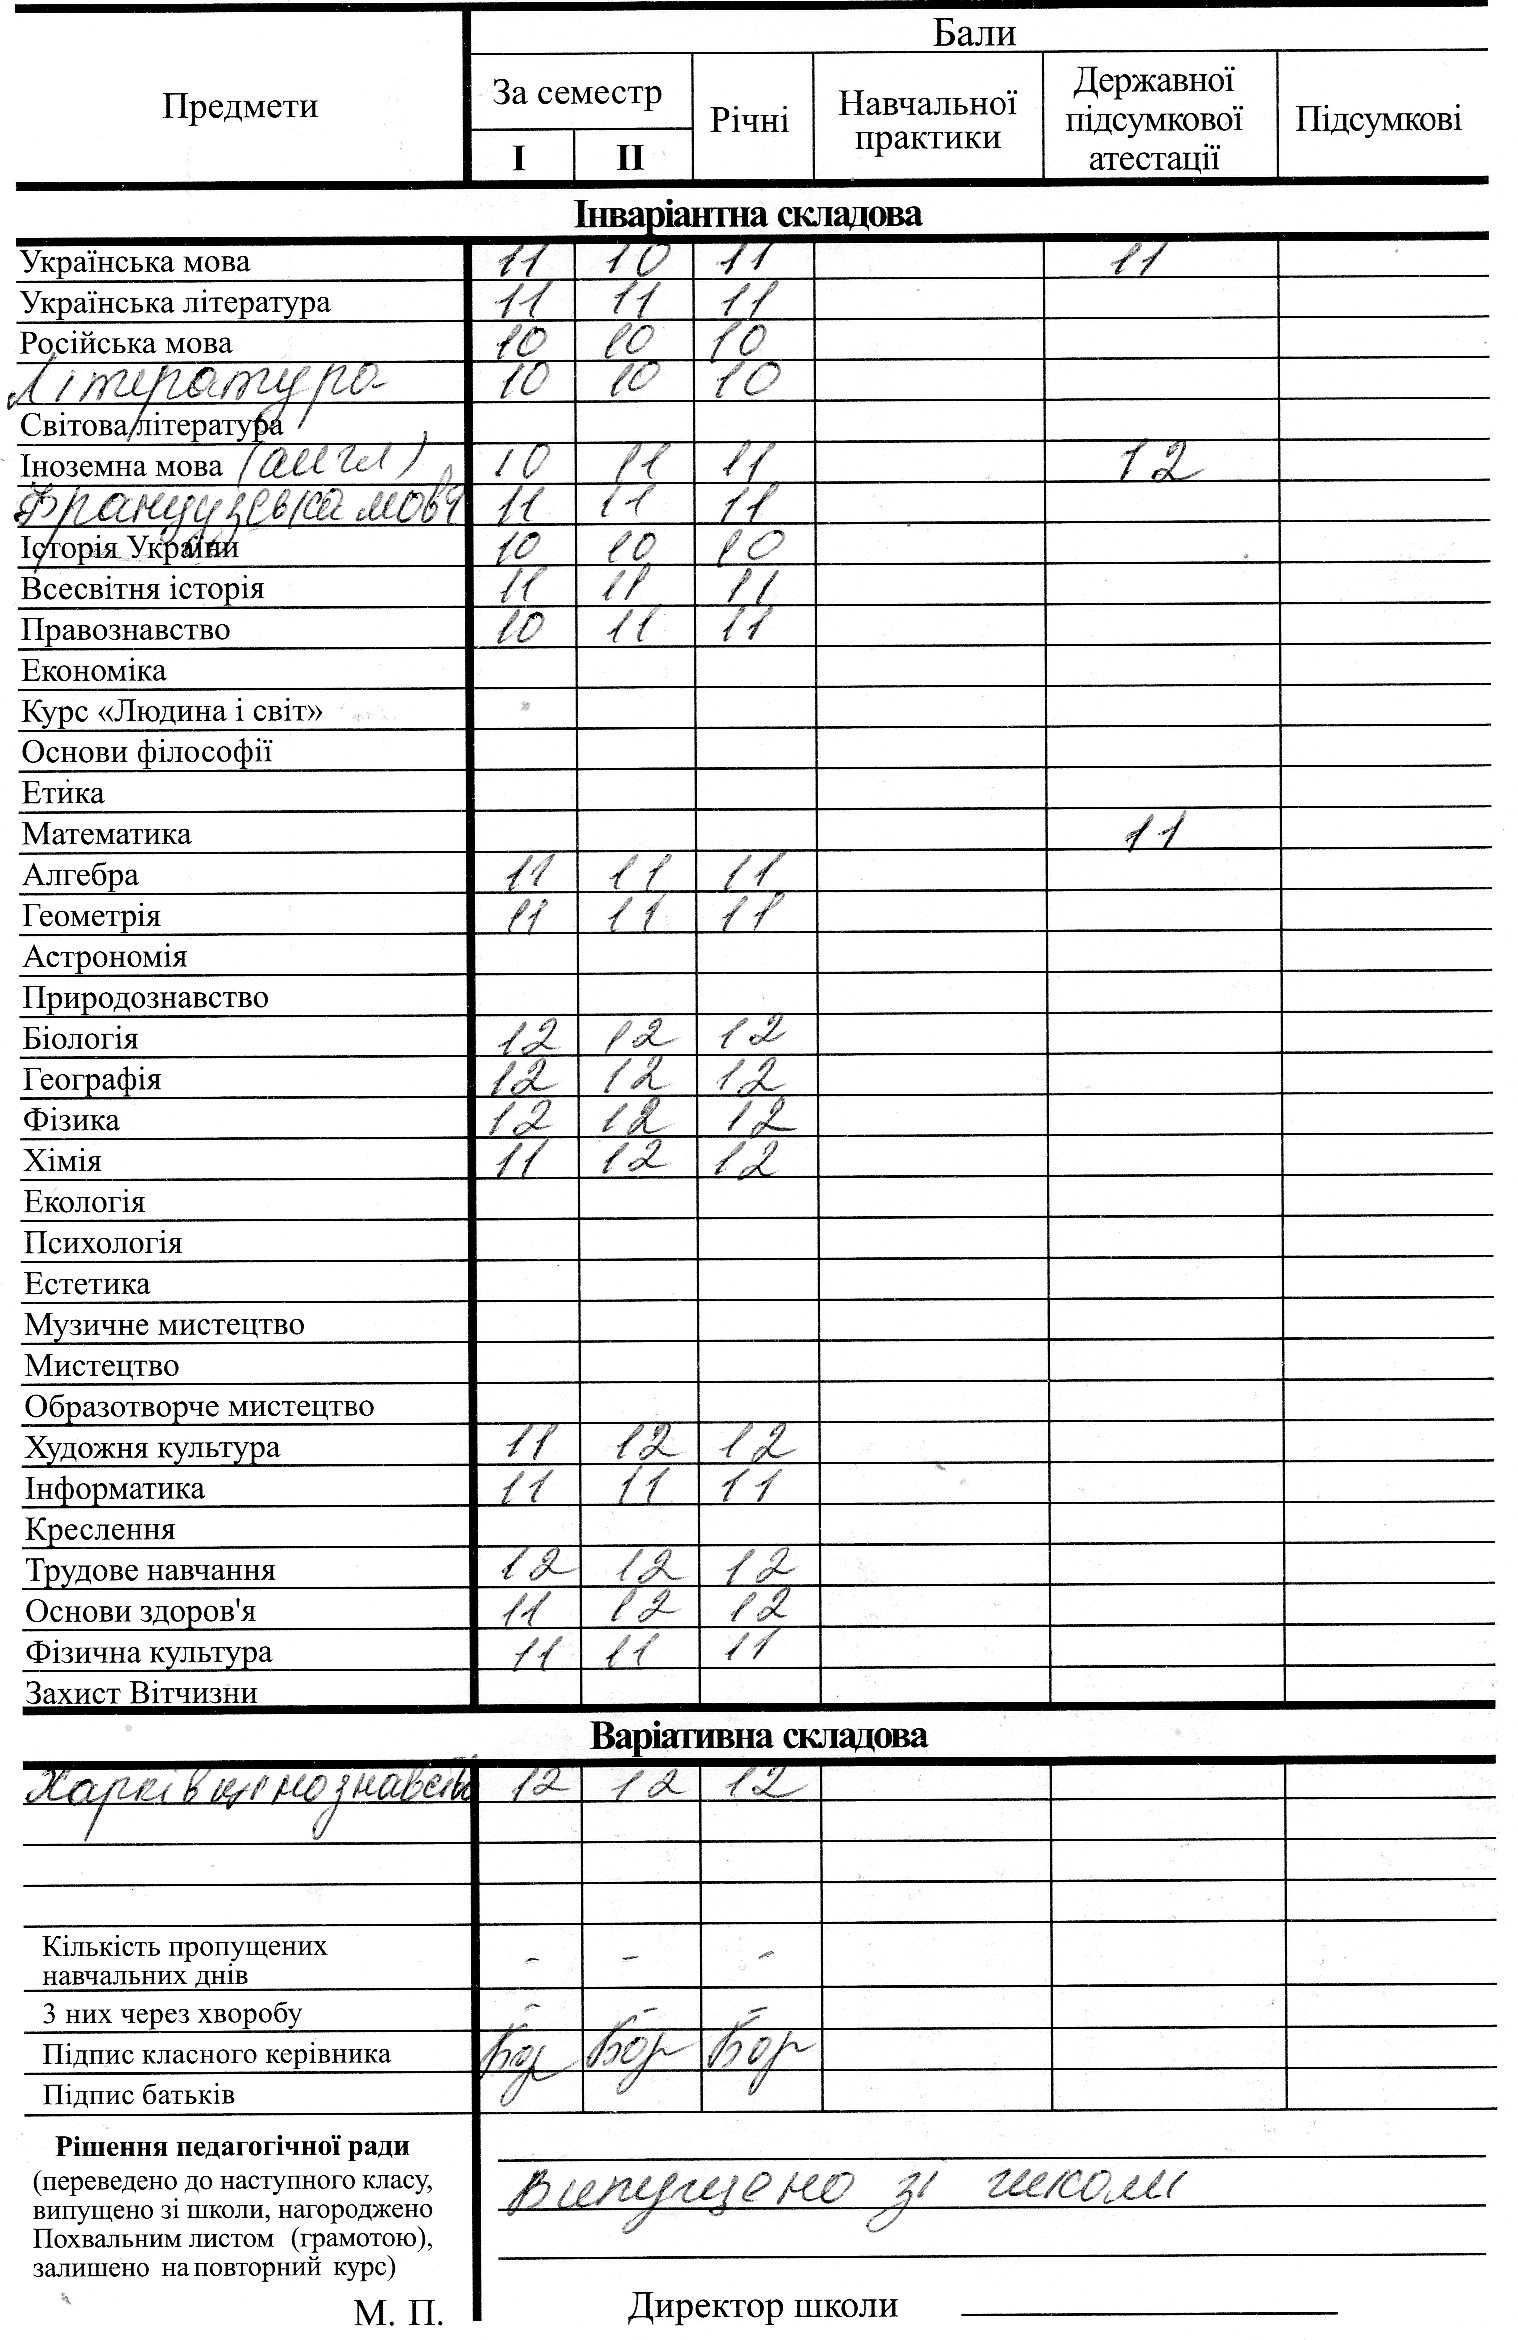 Предмети
Бали
За семестр
І ІІ
Річні
Навчальної практики
Державної підсумкової атестації
Підсумкові
Інваріантна складова
Українська мова 11 10 11 11
Українська література 11 11 11
Російська мова 10 10 10
Література 10 10 10
Світова література
Іноземна мова (англ) 10 11 11 12
Французська мова 11 11 11
Історія України 10 10 10
Всесвітня історія 11 11 11
Правознавство 10 11 11
Економіка
Курс «Людина і світ»
Основи філософії
Етика
Математика 11
Алгебра 11 11 11
Геометрія 11 11 11
Астрономія
Природознавство
Біологія 12 12 12
Географія 12 12 12
Фізика 12 12 12
Хімія 11 12 12
Екологія
Психологія
Естетика
Музичне мистецтво
Мистецтво
Образотворче мистецтво
Художня культура 11 12 12
Інформатика 11 11 11
Креслення
Трудове навчання 12 12 12
Основи здоров'я 11 12 12
Фізична культура 11 11 11
Захист Вітчизни
Варіативна складова
Харківщинознавство 12 12 12
Кількість пропущених
навчальних днів - - -
З них через хворобу - - -
Підпис класного керівника Бор Бор Бор
Підпис батьків
Рішення педагогічної ради
(переведено до наступного класу,
випущено зі школи, нагороджено
Похвальним листом (грамотою),
залишено на повторний курс)
Випущено зі школи
М. П.
Директор школи